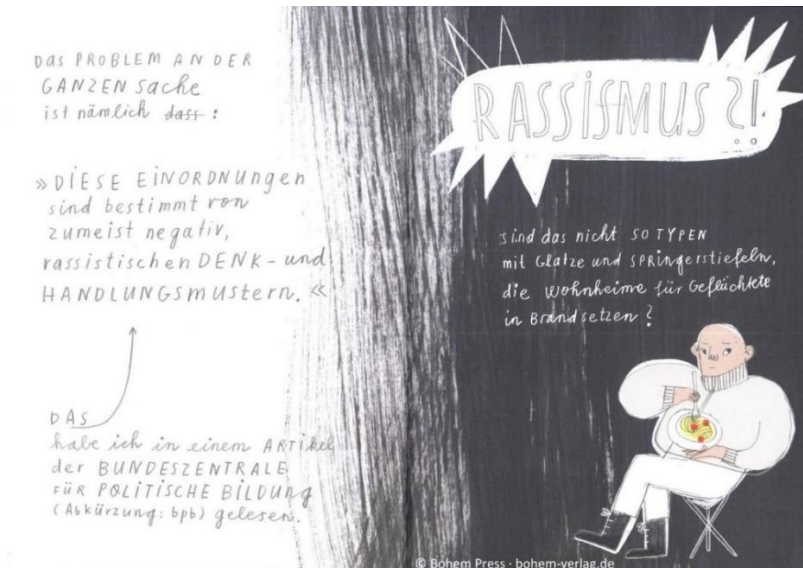 DAS PROBLEM AN DER
GANZEN SACHE
ist nämlich dass :
»DIESE EINORDNUNGEN
sind bestimmt von
zumeist negativ,
rassistischen DENK- und
HANDLUNGSMUSTERN.«
DAS
habe ich in einem ARTIKEL
der BUNDESZENTRALE
FÜR POLITISCHE BILDUNG
(Abkürzung: bpb) gelesen.
RASSISMUS?!
sind das nicht SO TYPEN
mit Glatze und SPRingerstiefeln,
die Wohnheime für Geflüchtete
in Brand setzen?
© Bohem Press · bohem-verlag.de